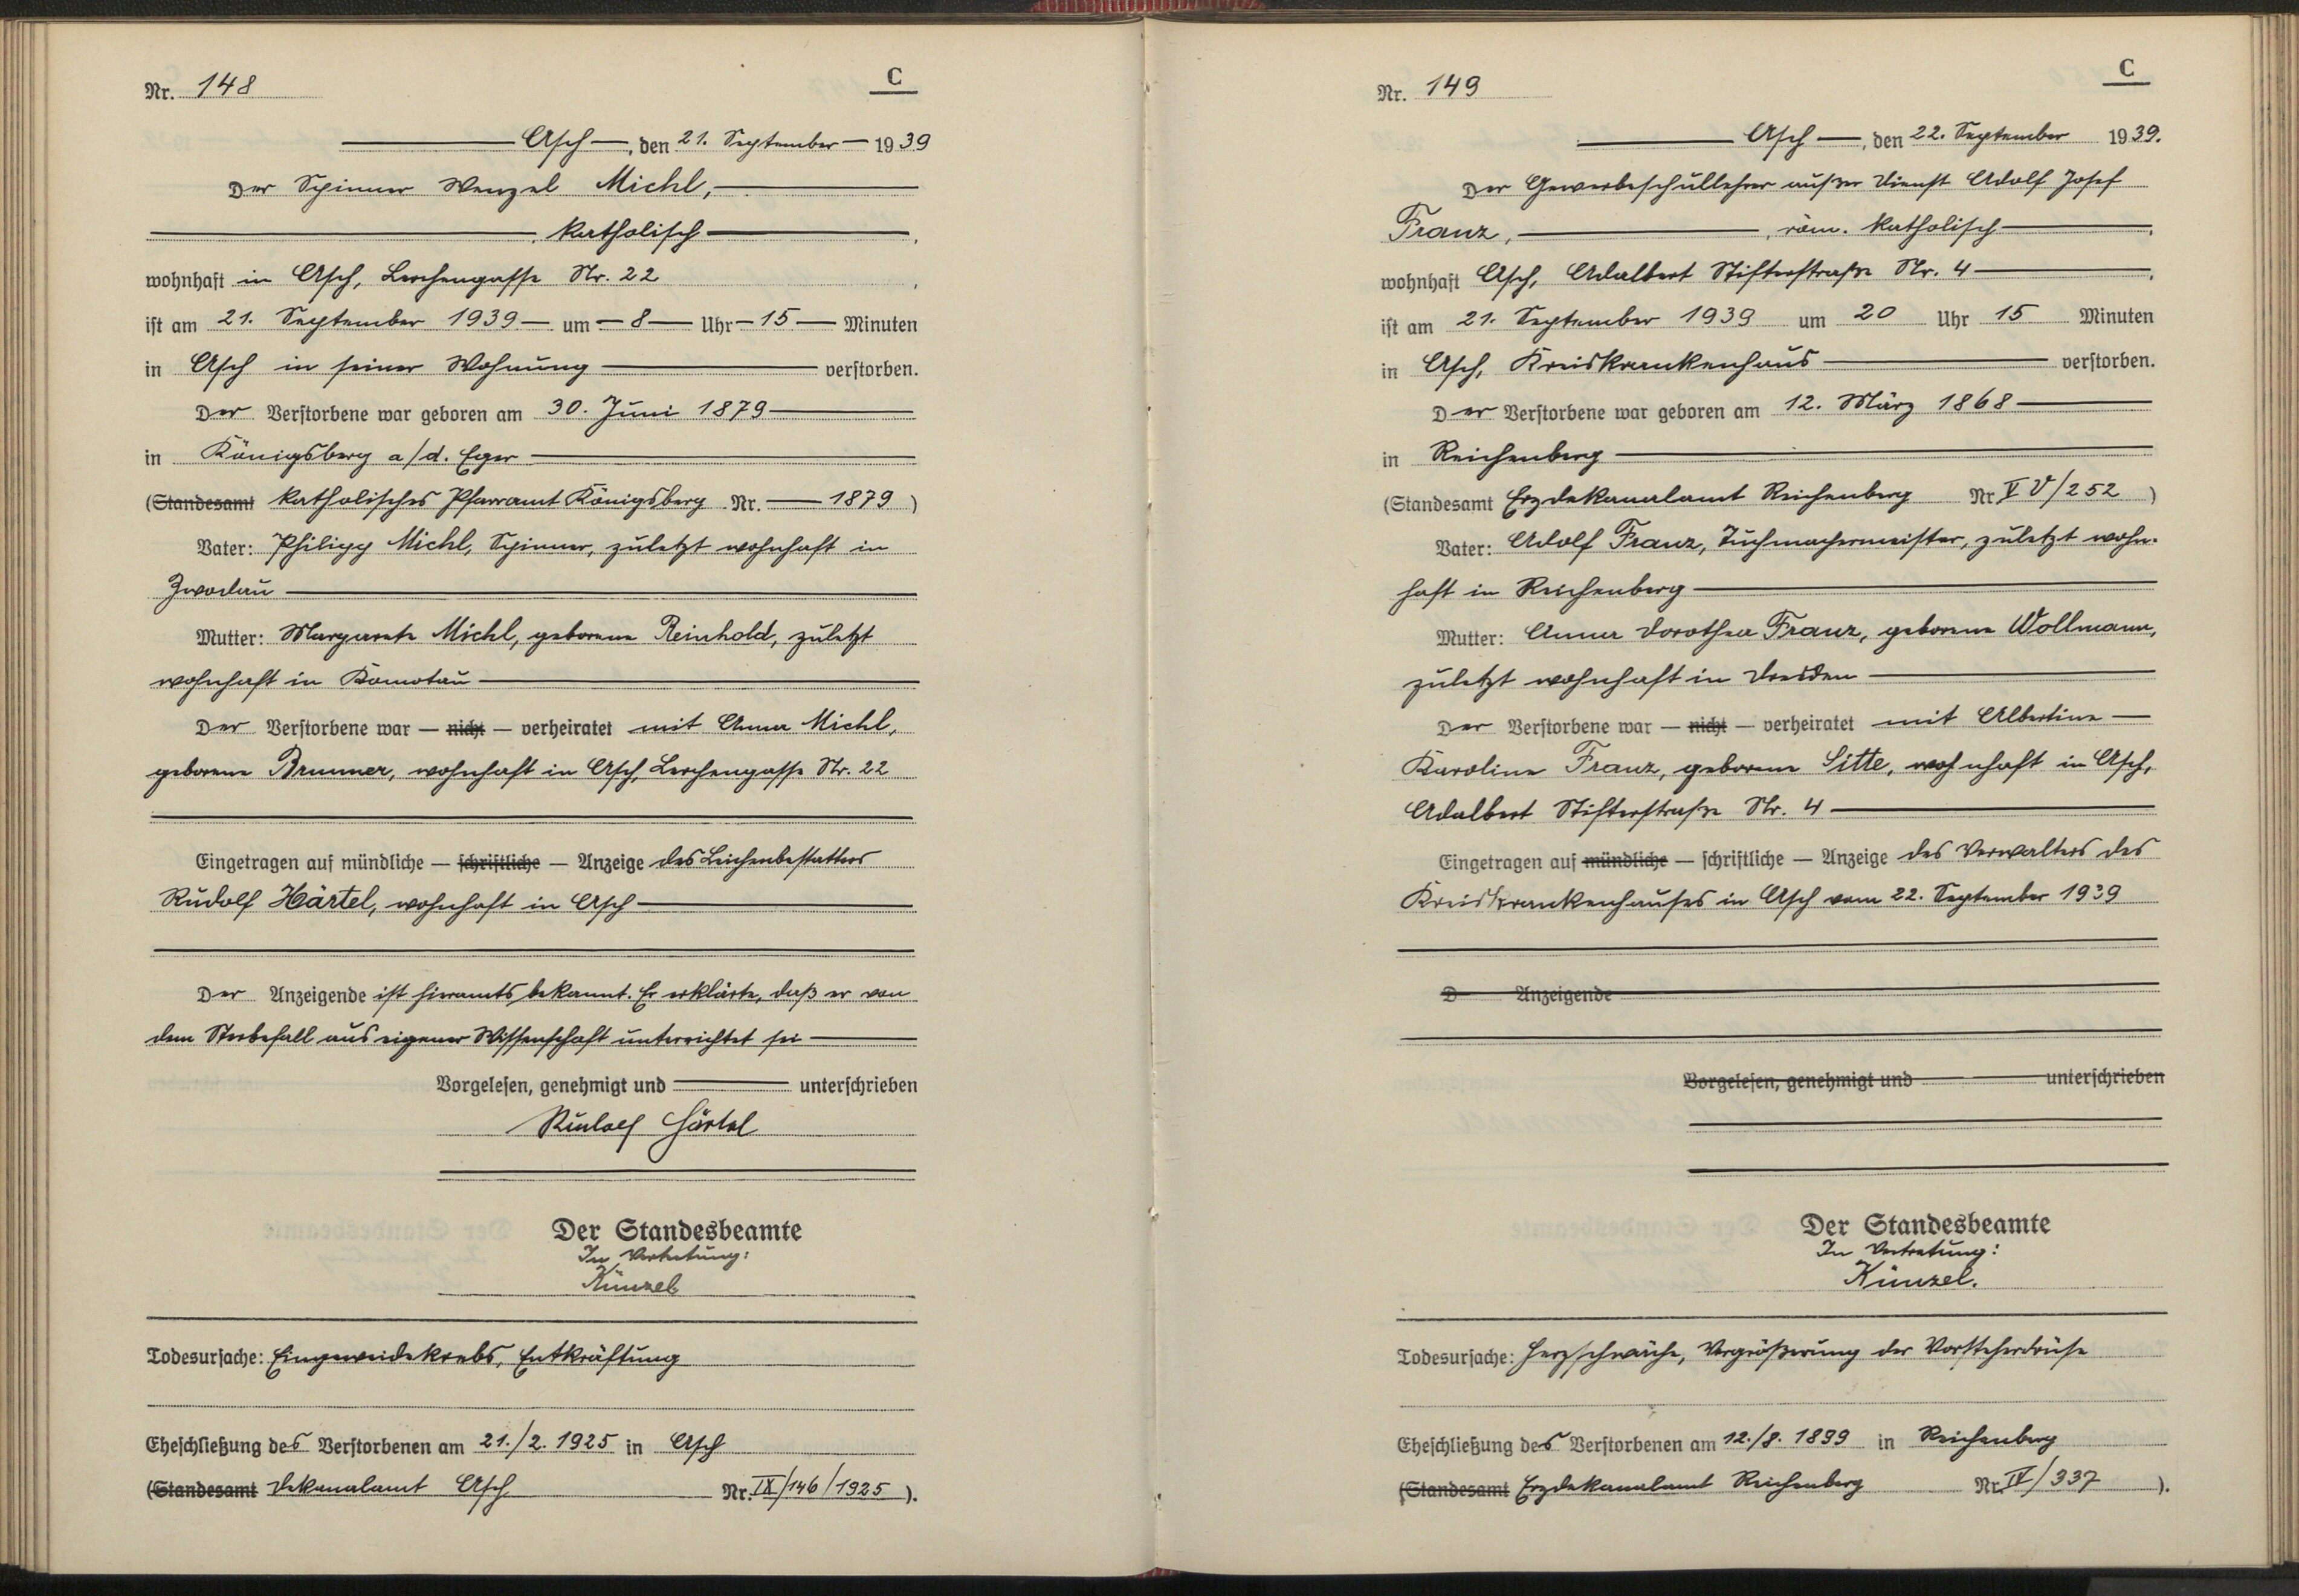 Nr. 148
C
Asch, den 21. September 1939
Der Spinner Wenzel Michl,
, katholisch,
wohnhaft in Asch, Lerchengasse Nr. 22,
ist am 21. September 1939 um 8 Uhr 15 Minuten
in Asch in seiner Wohnung verstorben.
Der Verstorbene war geboren am 30. Juni 1879
in Königsberg a/d. Eger
(Standesamt katholisches Pfarramt Königsberg Nr. 1879)
Vater: Philipp Michl, Spinner, zuletzt wohnhaft in
Zwodau
Mutter: Margarete Michl, geborene Reinhold, zuletzt
wohnhaft in Komotau
Der Verstorbene war — nicht — verheiratet mit Anna Michl,
geborene Brunner, wohnhaft in Asch, Lerchengasse Nr. 22
Eingetragen auf mündliche — schriftliche — Anzeige des Leichenbestatters
Rudolf Härtel, wohnhaft in Asch
Der Anzeigende ist hieramts bekannt. Er erklärte, daß er von
dem Sterbefall aus eigener Wissenschaft unterrichtet sei
Vorgelesen, genehmigt und unterschrieben
Rudolf Härtel
Der Standesbeamte
In Vertretung:
Künzel
Todesursache: Eingeweidekrebs, Entkräftung
Eheschließung des Verstorbenen am 21./2. 1925 in Asch
(Standesamt Dekanalamt Asch Nr. IX/146/1925).
Nr. 149
C
Asch, den 22. September 1939.
Der Gewerbeschullehrer außer Dienst Adolf Josef
Franz, , röm. katholisch,
wohnhaft Asch, Adalbert Stifterstraße Nr. 4,
ist am 21. September 1939 um 20 Uhr 15 Minuten
in Asch, Kreiskrankenhaus verstorben.
Der Verstorbene war geboren am 12. März 1868
in Reichenberg
(Standesamt Erzdekanalamt Reichenberg Nr V/252)
Vater: Adolf Franz, Tuchmachermeister, zuletzt wohn-
haft in Reichenberg
Mutter: Anna Dorothea Franz, geborene Wollmann,
zuletzt wohnhaft in Dresden
Der Verstorbene war — nicht — verheiratet mit Albertine
Karoline Franz, geborene Sitte, wohnhaft in Asch,
Adalbert Stifterstraße Nr. 4
Eingetragen auf mündliche — schriftliche — Anzeige des Verwalters des
Kreiskrankenhauses in Asch vom 22. September 1939
D Anzeigende
Vorgelesen, genehmigt und unterschrieben
Der Standesbeamte
In Vertretung:
Künzel.
Todesursache: Herzschwäche, Vergrößerung der Vorsteherdrüse
Eheschließung des Verstorbenen am 12./8. 1899 in Reichenberg
(Standesamt Erzdekanalamt Reichenberg Nr. IV/337).